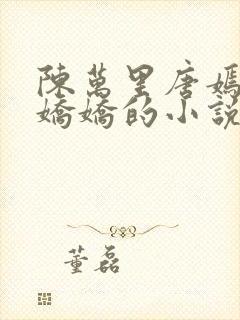 陳萬里唐嫣
嬌嬌的小說
董磊